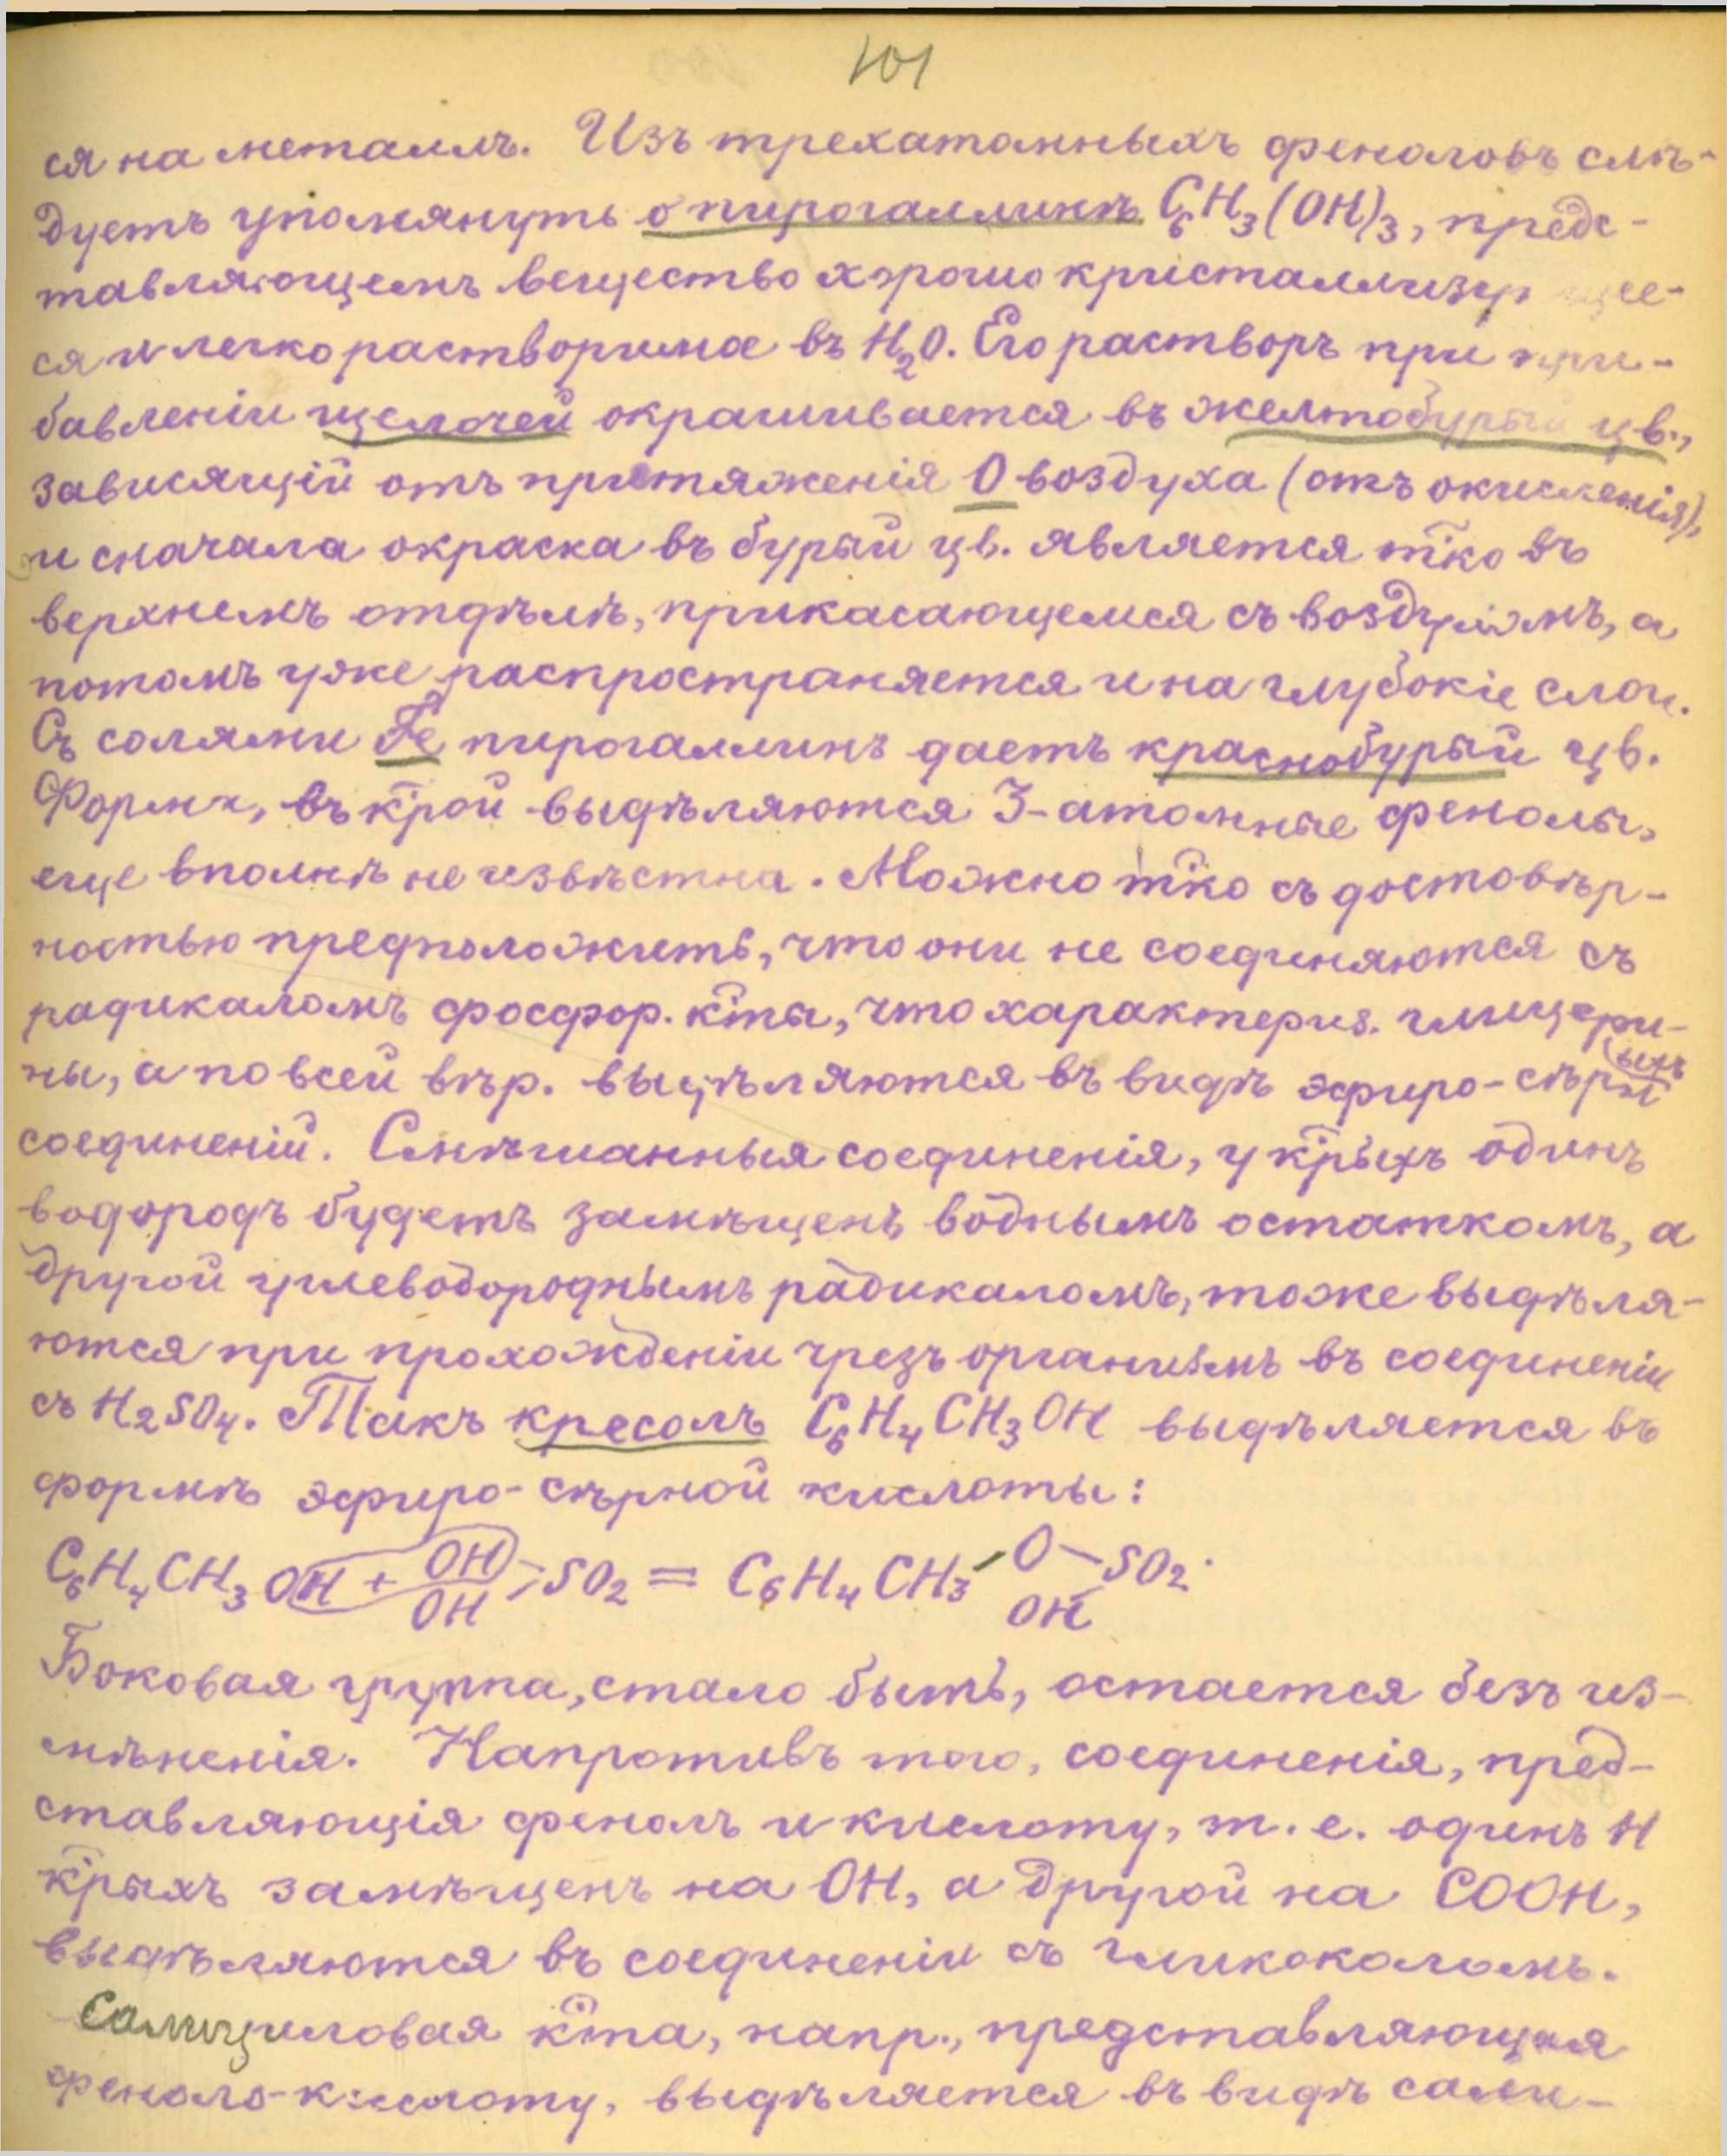 101
ся на металлъ. Изъ трехатомныхъ феноловъ слѣ-
дуетъ упомянуть о пирогаллинѣ C6H3(OH)3, предс-
тавляющемъ вещество хорошо кристаллизу щее-
ся и легко растворимое въ H2O. Его растворъ при при-
бавленіи щелочей окрашивается въ желтобурый цв.,
зависящій отъ притяженія O воздуха (отъ окисленія),
и сначала окраска въ бурый цв. является тко въ
верхнемъ отдѣлѣ, прикасающемся съ воздухомъ, а
потомъ уже распространяется и на глубокіе слои.
Съ солями Fe пирогаллинъ даетъ краснобурый цв.
Форма, въ крой выдѣляются 3-атомные фенолы,
еще вполнѣ не извѣстна. Можно тко съ достовѣр-
ностью предположить, что они не соединяются съ
радикаломъ фосфор. кты, что характериз. глицери-
ны, а по всей вѣр. выдѣляются въ видѣ эфиро-сѣрныхъ
соединеній. Смѣшанныя соединенія, у крыхъ одинъ
водородъ будетъ замѣщенъ воднымъ остаткомъ, а
другой углеводороднымъ радикаломъ, тоже выдѣля-
ются при прохожденіи чрезъ организмъ въ соединеніи
съ H2SO4. Такъ кресолъ C6H4CH3OH выдѣляется въ
формѣ эфиро-сѣрной кислоты:
C6H4CH3OH + OH OH >SO2 = C6H4CH3 - O OH - SO2.
Боковая группа, стало быть, остается безъ из-
мѣненія. Напротивъ того, соединенія, пред-
ставляющія фенолъ и кислоту, т. е. одинъ H
крыхъ замѣщенъ на OH, а другой на COOH,
выдѣляются въ соединеніи съ гликоколомъ.
Салициловая кта, напр., представляющая
феноло-кислоту, выдѣляется въ видѣ сали-